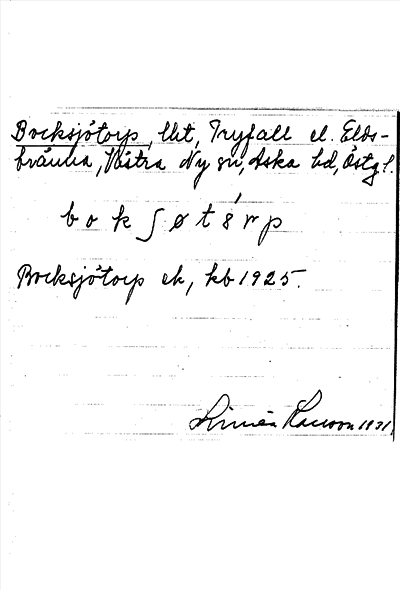 Bocksjötorp, lht, Tryfall el. Elds-
bränna, Västra Ny sn, Aska hd, Östgl.
bokʃøtórp
Bocksjötorp ek, kb 1925.
Linnéa Larsson 1931